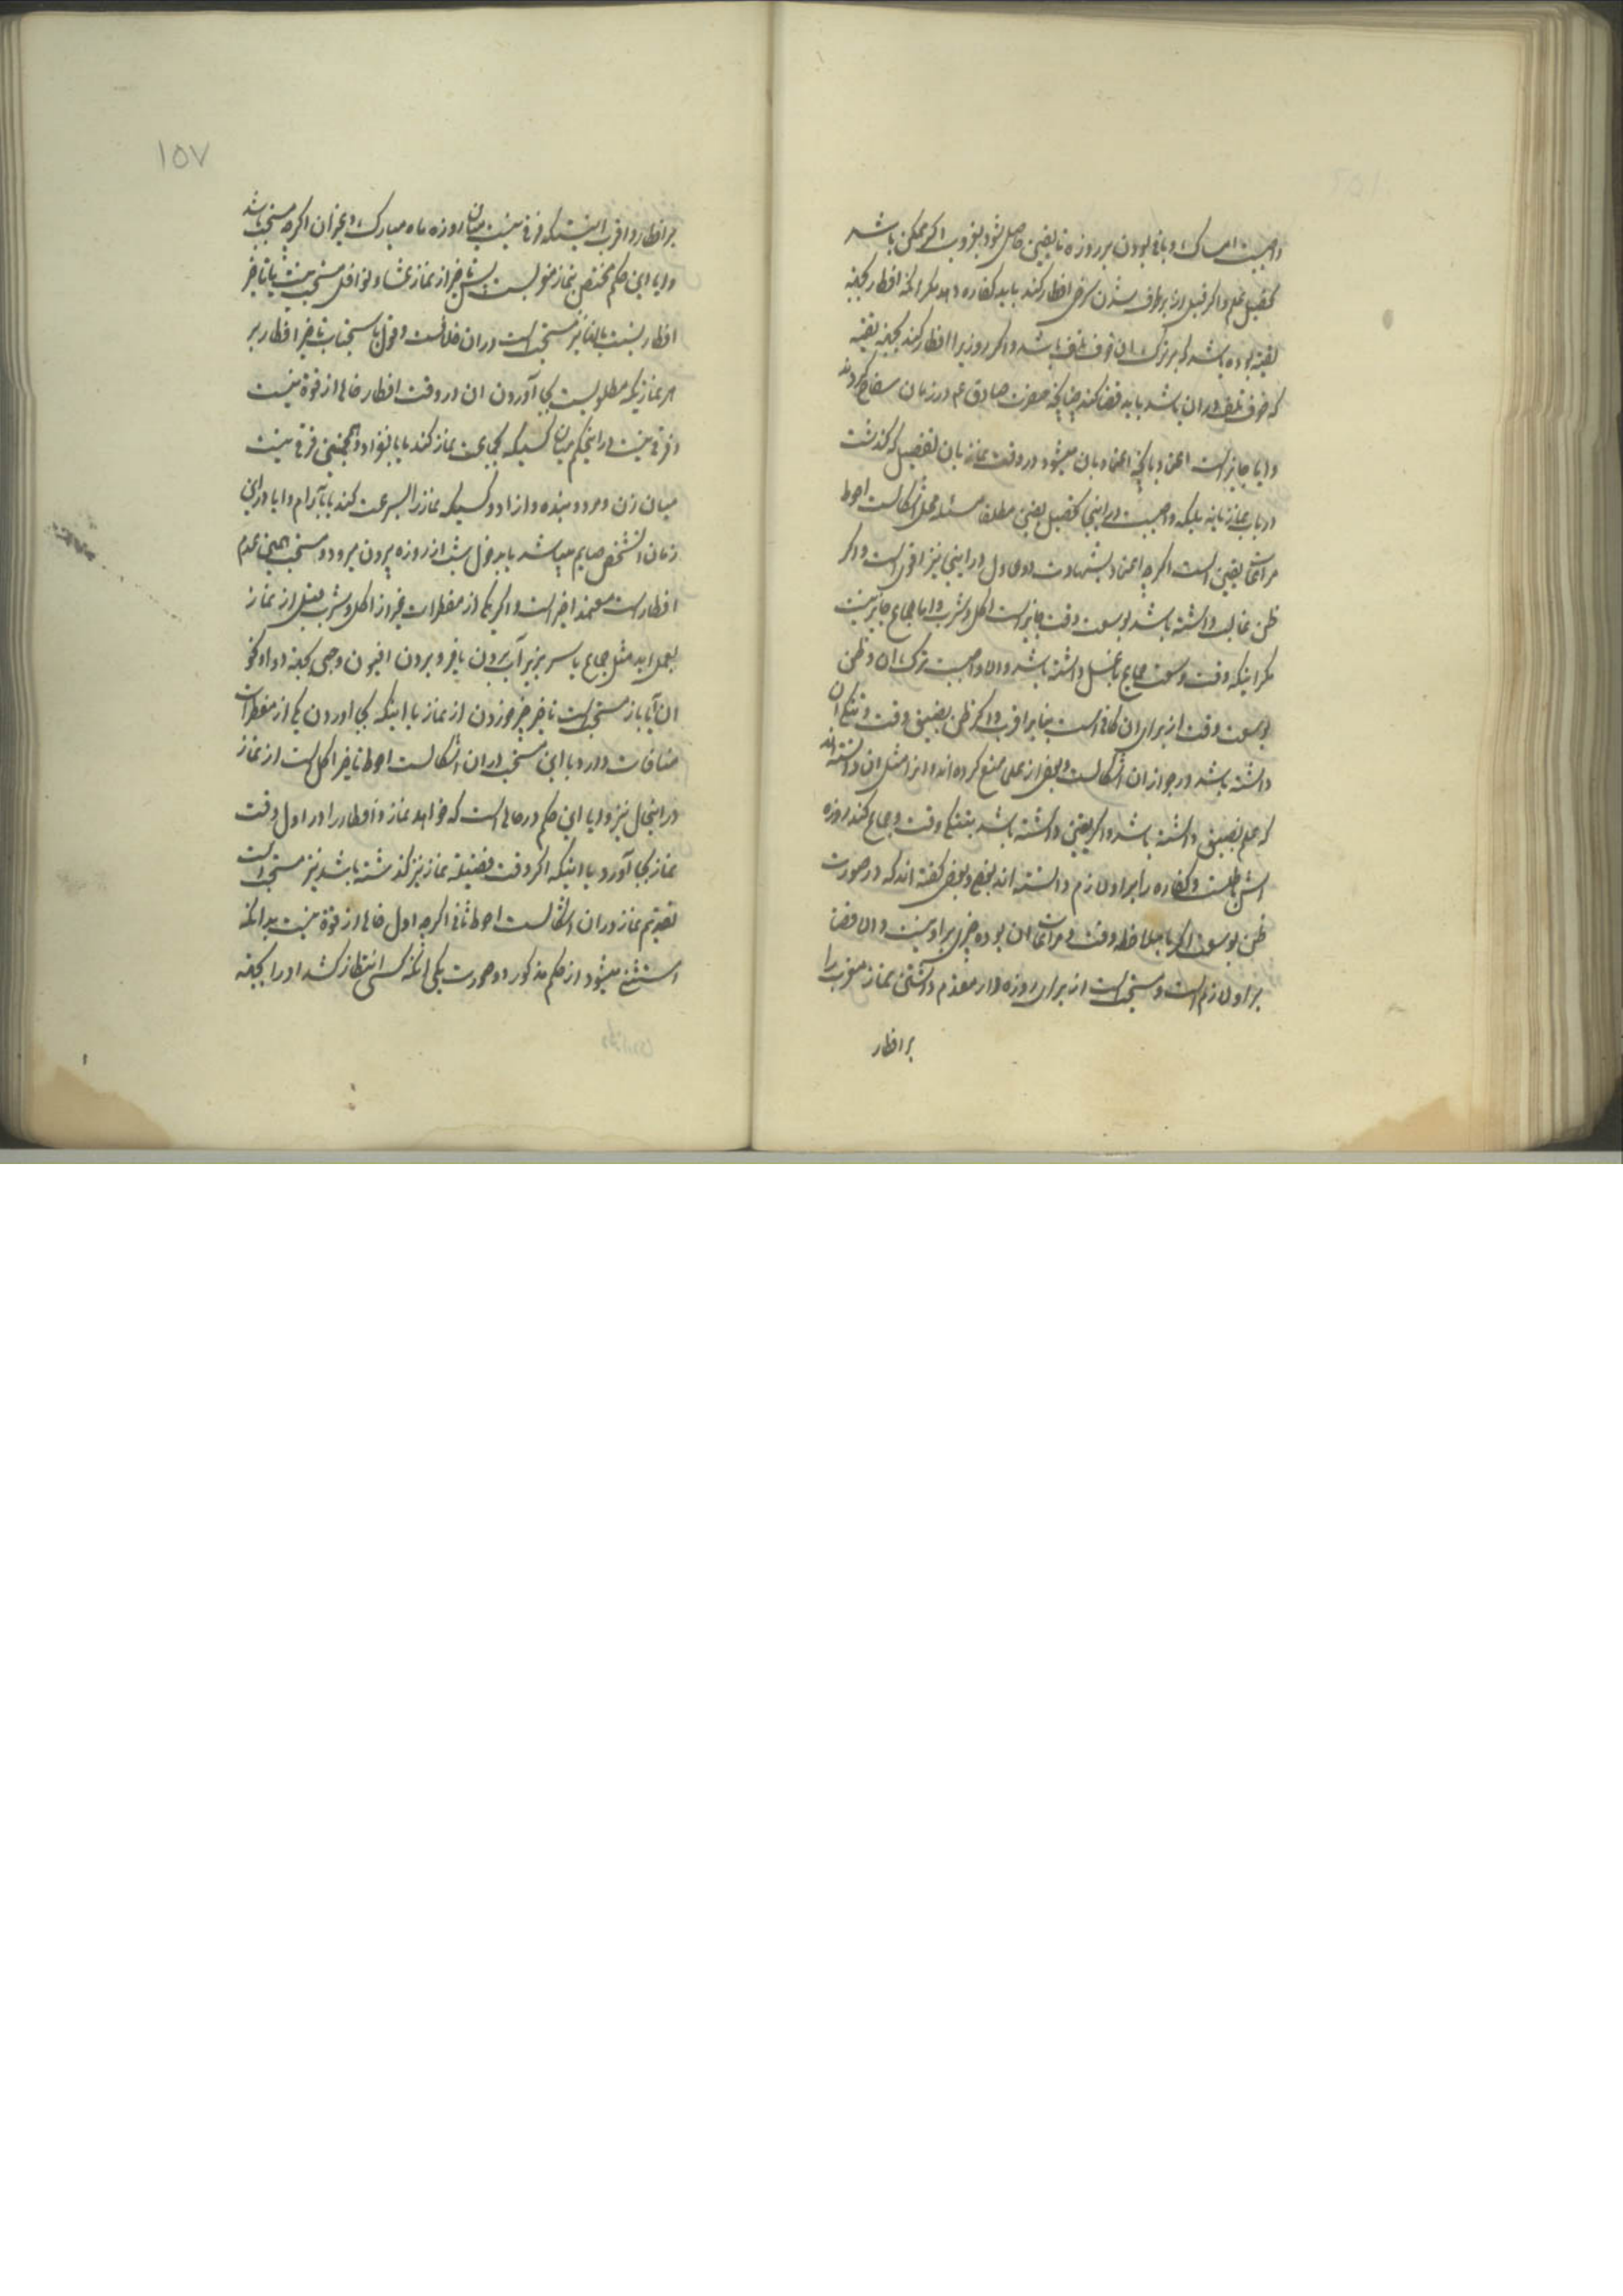 واجبست امساک و باقی بودن بر روزه تا یقین حاصل شود بغروب اگر ممکن باشد
تحصیل علم و اگر قبل از برطرف شدن سرخی افطار کند باید کفاره دهد مگر انکه افطار بجهة
تقیه بوده باشد که بر ترک ان خوف تلف باشد و اگر روزیرا افطار کند بجهة تقیه
که خوف تلف در ان باشد باید قضا کند چنانچه حضرت صادق عم در زمان سفاح کردند
و ایا جایز است اعتماد بانچه اعتماد بان میشود در وقت نماز بان تفصیل که گذشت
در باب نماز یا نه بلکه واجبست در اینجا تحصیل یقین مطلقا مسئله محل اشکالست احوط
مراعات یقین است اگرچه اعتماد بشهادت دو عادل در اینجا نیز اقوی است و اگر
ظن غالب داشته باشد بوسعت وقت جایز است اکل و شرب و اما جماع جایز نیست
مگر اینکه وقت وسعت جماع و غسل داشته باشد والا واجبست ترک ان و ظن
بوسعت وقت از برای ان کافی است بنا بر اقرب و اگر ظن بضیق وقت و تنگی ان
داشته باشد در جواز ان اشکالست و بعضی از علما منع کرده اند و انرا مثل ان دانسته اند
که علم بضیق داشته باشد و اگر یقین داشته باشد بتنگی وقت و جماع کند روزه
اش باطلست و کفاره را بر او لازم دانسته اند بعضی و بعضی گفته اند که در صورت
ظن بوسعت اگر با ملاحظه وقت و مراعات ان بوده چیزی بر او نیست والا قضا
بر او لازم است و مستحب است از برای روزه دار مقدم داشتن نماز مغرب را
بر افطار
۱۵۷
بر افطار و اقرب اینستکه فرقی نیست میان روزه ماه مبارک و غیر ان اگرچه مستحب باشد
و ایا این حکم مختص بنماز مغربست پس تاخیر از نماز عشا و نوافل مستحب نیست یا تاخیر
افطار نسبت بانها نیز مستحب است در ان خلافست و قول باستحباب تاخیر افطار بر
هر نمازیکه مطلوبست بجا آوردن ان در وقت افطار خالی از قوة نیست
و فرقی نیست در اینحکم میان کسیکه بجماعت نماز کند یا بانفراد و همچنین فرقی نیست
میان زن و مرد و بنده و ازاد و کسیکه نماز را بسرعت کند یا بآرام و ایا در این
زمان انشخص صایم میباشد یا بدخول شب از روزه بیرون میرود و مستحب همین عدم
افطار است معتمد اخیر است و اگر یکی از مفطرات غیر از اکل و شرب قبل از نماز
بعمل اید مثل جماع یا سر بزیر آب بردن یا فرو بردن افیون و حبی بجهة دوا و نحو
ان آیا باز مستحب است تاخیر چیز خوردن از نماز یا اینکه بجا اوردن یکی از مفطرات
منافات دارد با این مستحب در ان اشکالست احوط تاخیر اکل است از نماز
در اینحال نیز و ایا این حکم در حالی است که خواهد نماز و افطار را در اول وقت
نماز بجا آورد یا اینکه اگر وقت فضیلة نماز نیز گذشته باشد نیز مستحب است
تقدیم نماز در ان اشکالست احوط ثانی اگرچه اول خالی از قوة نیست بدانکه
استثنی میشود از حکم مذکور دو صورت یکی انکه کسی انتظار کشد او را بجهة